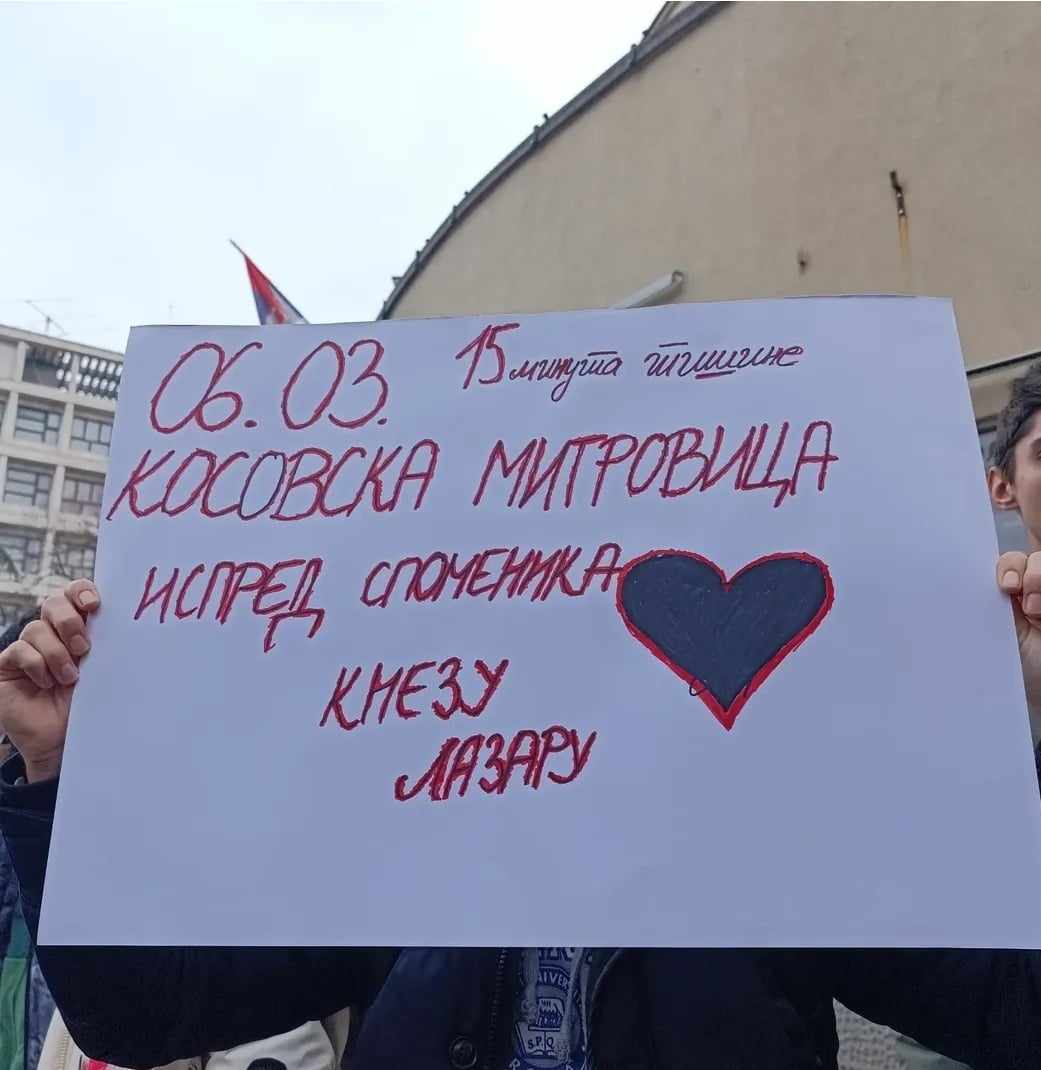 06.03. 15 минута тишине
КОСОВСКА МИТРОВИЦА
ИСПРЕД СПОМЕНИКА
КНЕЗУ
ЛАЗАРУ
S.P.Q